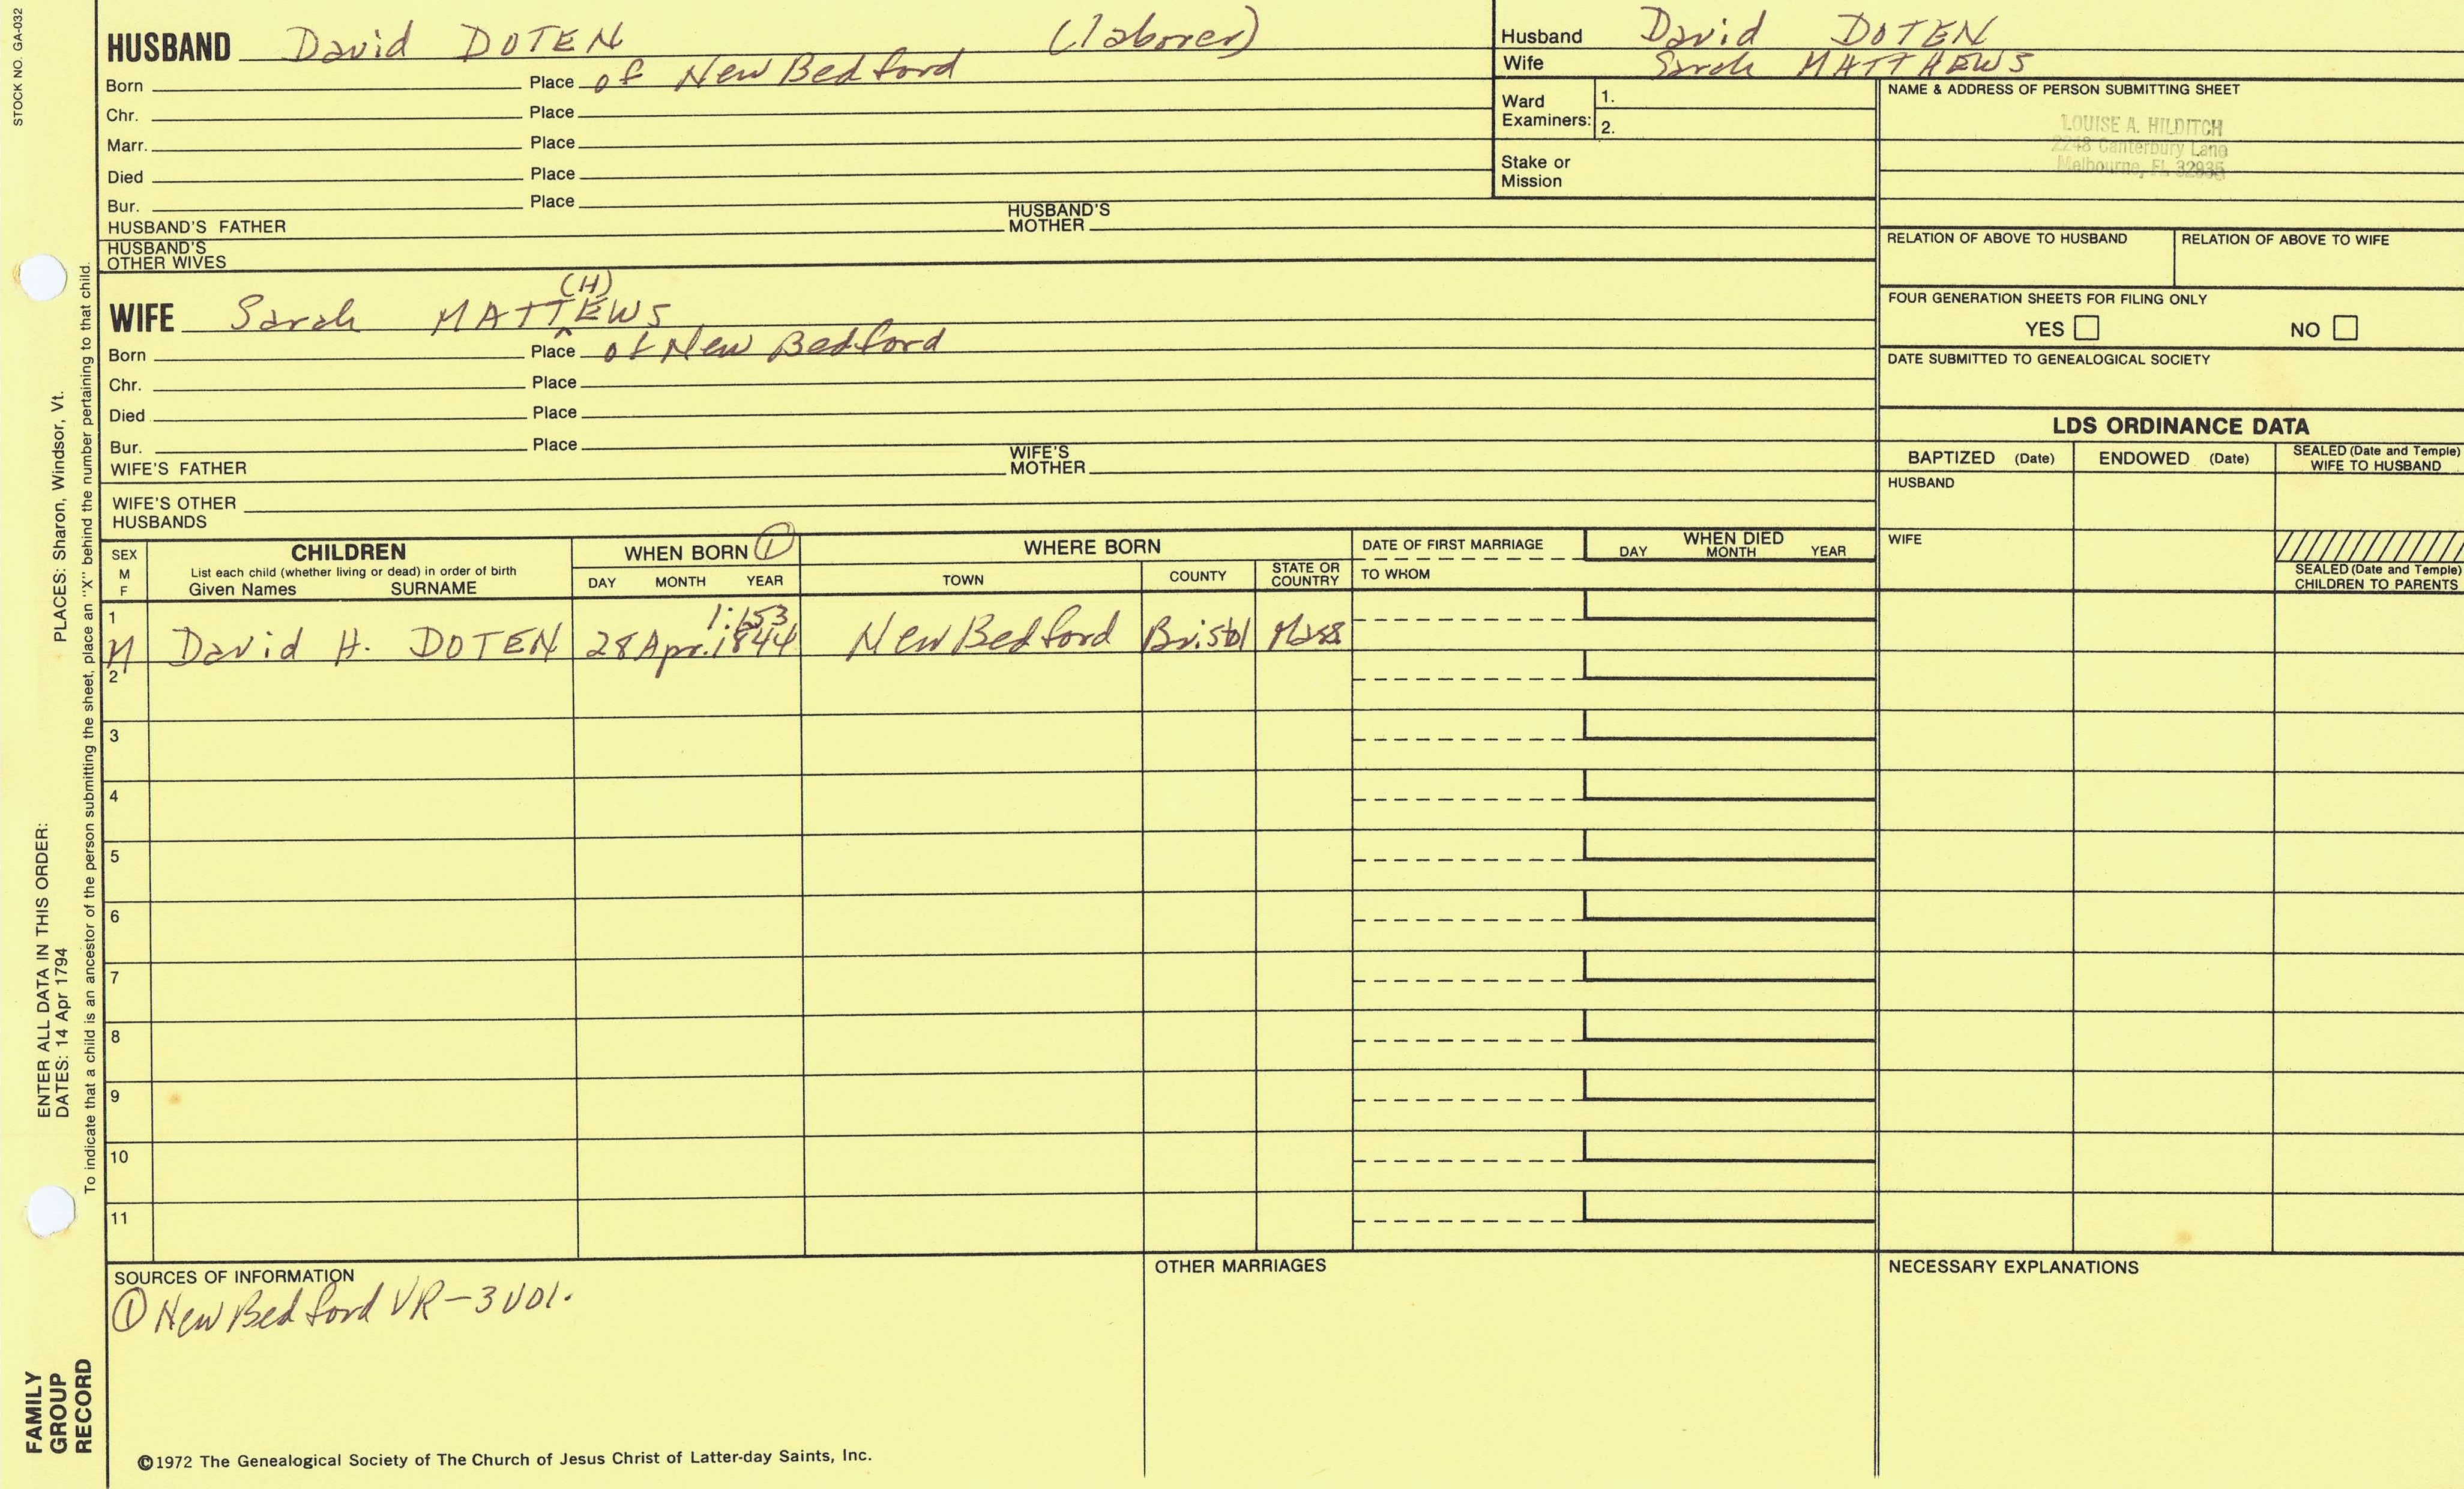 STOCK NO. GA-032
HUSBAND David DOTEN (laborer)
Born Place of New Bedford
Chr. Place
Marr. Place
Died Place
Bur. Place
HUSBAND'S FATHER HUSBAND'S MOTHER
HUSBAND'S OTHER WIVES
Husband David DOTEN
Wife Sarah MATTHEWS
Ward Examiners: 1.
2.
Stake or Mission
NAME & ADDRESS OF PERSON SUBMITTING SHEET
LOUISE A. HILDITCH
2248 Canterbury Lane
Melbourne, FL 32935
RELATION OF ABOVE TO HUSBAND RELATION OF ABOVE TO WIFE
FOUR GENERATION SHEETS FOR FILING ONLY
YES NO
DATE SUBMITTED TO GENEALOGICAL SOCIETY
(H)
WIFE Sarah MATT^EWS
Born Place of New Bedford
Chr. Place
Died Place
Bur. Place
WIFE'S FATHER WIFE'S MOTHER
WIFE'S OTHER HUSBANDS
LDS ORDINANCE DATA
BAPTIZED (Date) ENDOWED (Date) SEALED (Date and Temple) WIFE TO HUSBAND
HUSBAND
WIFE
SEALED (Date and Temple) CHILDREN TO PARENTS
SEX M F
CHILDREN
List each child (whether living or dead) in order of birth
Given Names SURNAME
WHEN BORN ①
DAY MONTH YEAR
WHERE BORN
TOWN COUNTY STATE OR COUNTRY
DATE OF FIRST MARRIAGE
TO WHOM
WHEN DIED
DAY MONTH YEAR
1 1:153
M David H. DOTEN 28 Apr. 1844 New Bedford Bristol Mass
2
3
4
5
6
7
8
9
10
11
SOURCES OF INFORMATION
① New Bedford VR-3 vol.
OTHER MARRIAGES
NECESSARY EXPLANATIONS
©1972 The Genealogical Society of The Church of Jesus Christ of Latter-day Saints, Inc.
FAMILY
GROUP
RECORD
ENTER ALL DATA IN THIS ORDER:
DATES: 14 Apr 1794 PLACES: Sharon, Windsor, Vt.
To indicate that a child is an ancestor of the person submitting the sheet, place an "X" behind the number pertaining to that child.